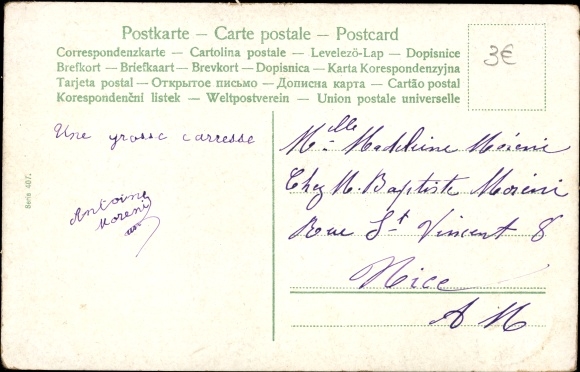 Postkarte — Carte postale — Postcard
Correspondenzkarte — Cartolina postale — Levelező-Lap — Dopisnice
Brefkort — Briefkaart — Brevkort — Dopisnica — Karta Korespondenzyjna
Tarjeta postal — Открытое письмо — Дописна карта — Cartão postal
Korespondenční listek — Weltpostverein — Union postale universelle
3€
Une grosse carresse
Antoine
Moreni
Mlle Madeleine Moreni
Chez M. Baptiste Moreni
Rue St Vincent 8
Nice
A M
Serie 407.